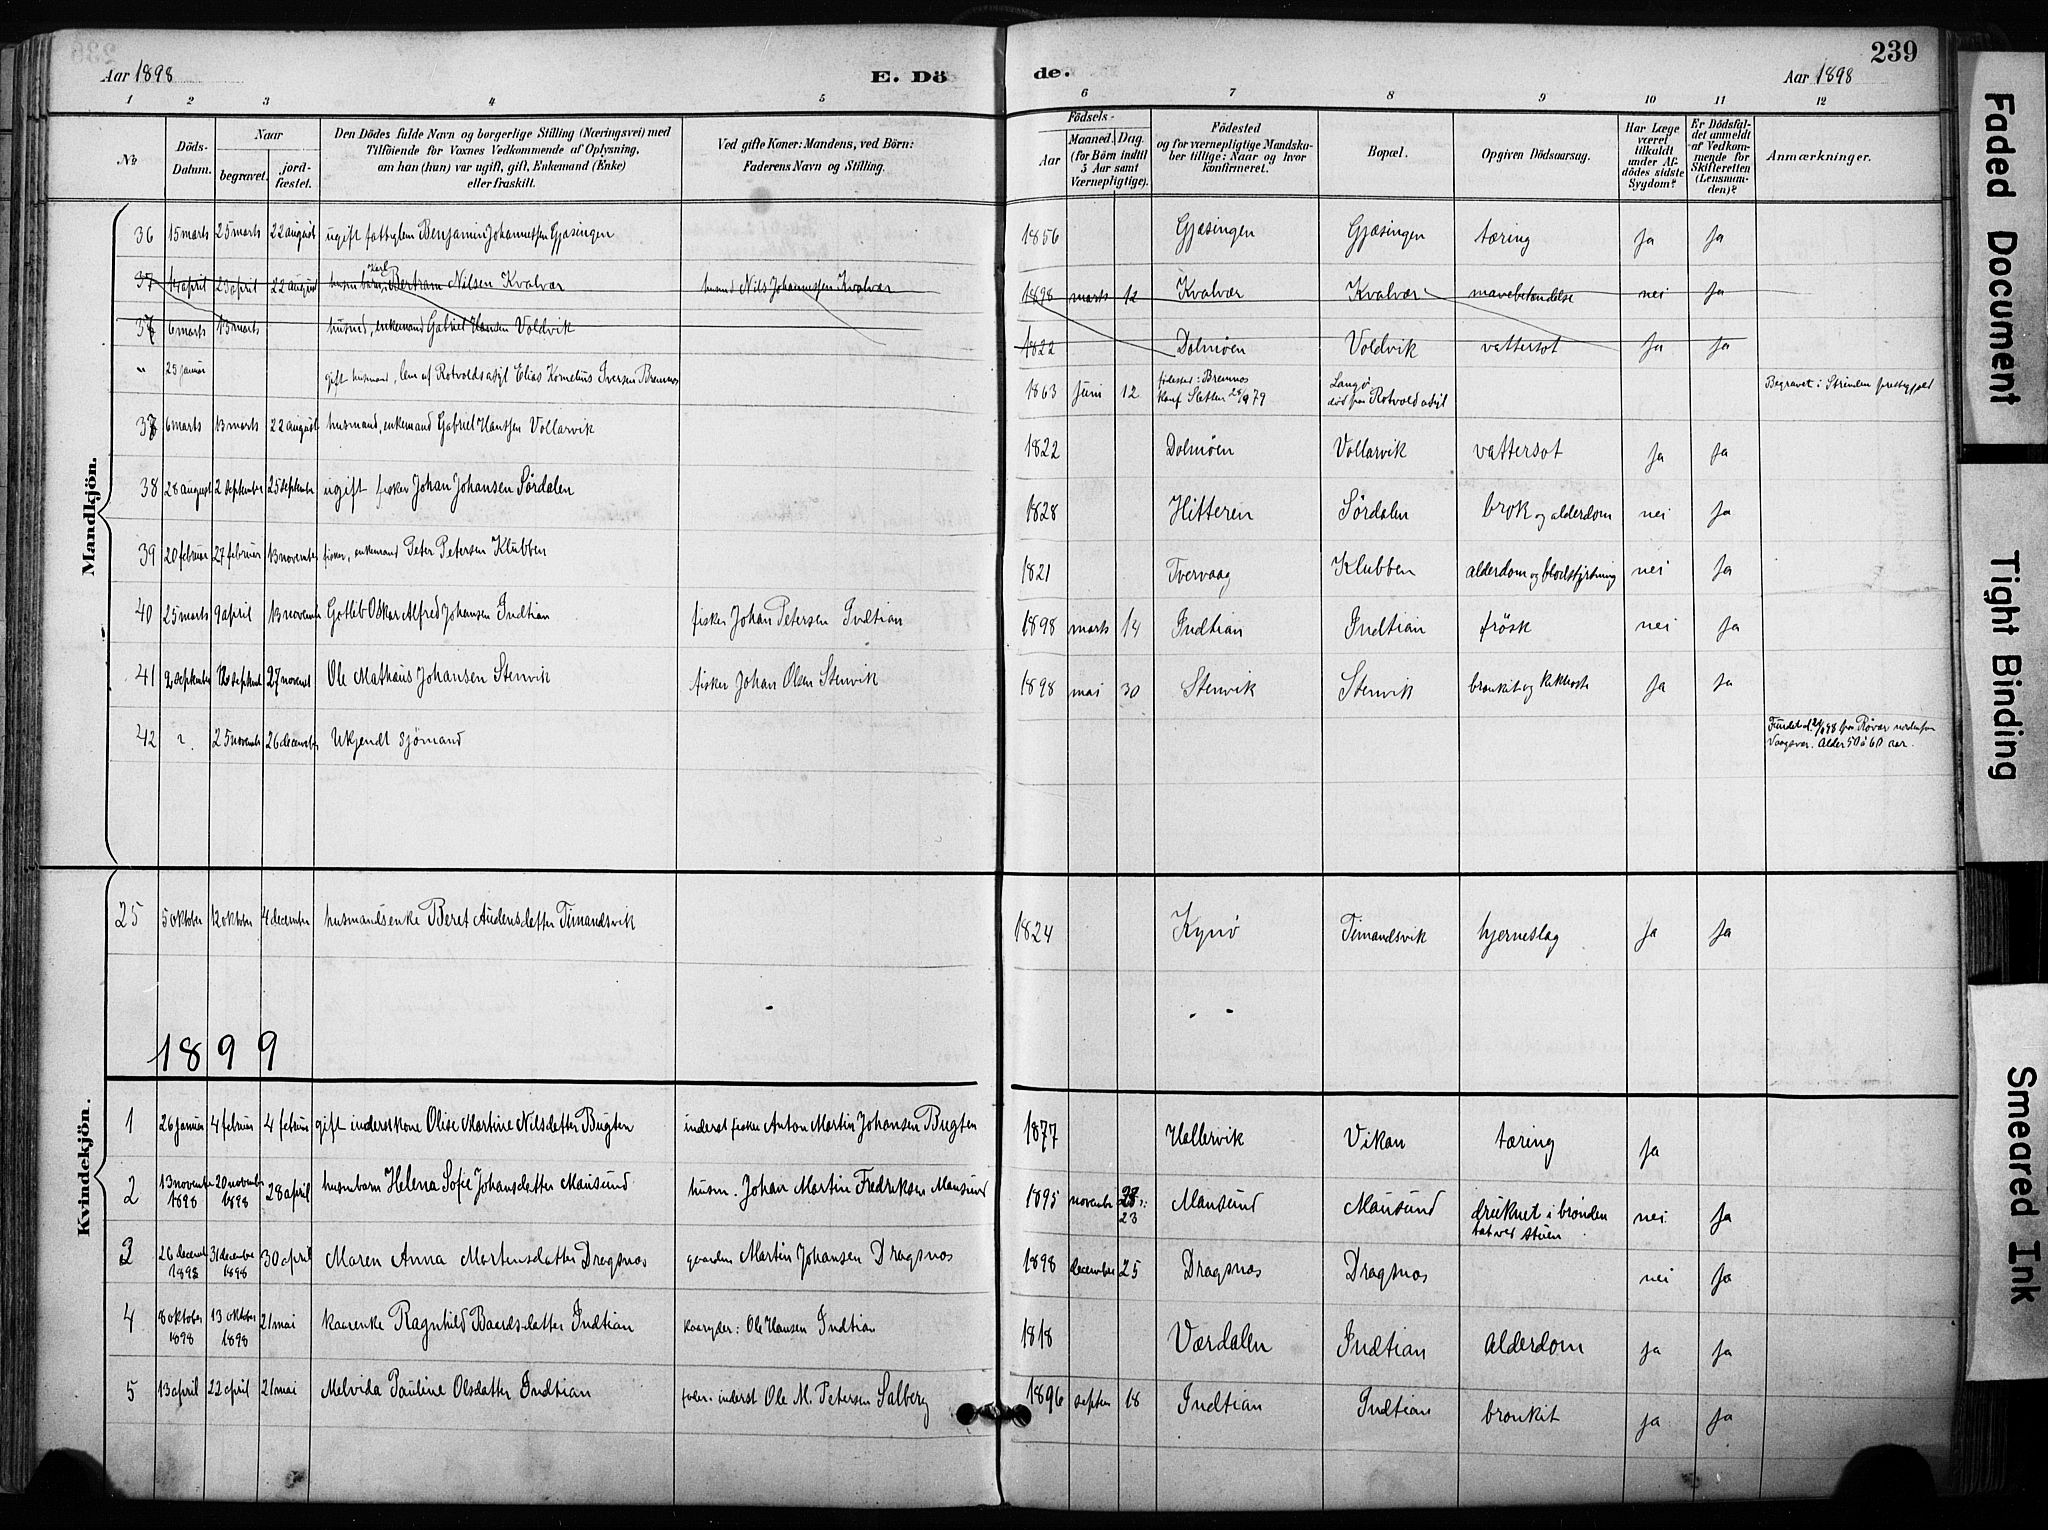 239
Aar 1898 E. Dö de. Aar 1898
1 2 3 4 5 6 7 8 9 10 11 12
No
Döds-Datum.
Naar
begravet.
jord-fæstet.
Den Dödes fulde Navn og borgerlige Stilling (Næringsvei) med
Tilföiende for Voxnes Vedkommende af Oplysning,
om han (hun) var ugift, gift, Enkemand (Enke)
eller fraskilt.
Ved gifte Koner: Mandens, ved Börn:
Faderens Navn og Stilling.
Födsels-
Aar
Maaned. Dag.
(for Börn indtil
3 Aar samt
Værnepligtige).
Födested
og for værnepligtige Mandska-
ber tillige: Naar og hvor
konfirmeret.
Bopæl.
Opgiven Dödsaarsag.
Har Læge
været
tilkaldt
under Af-
dödes sidste
Sygdom?
Er Dödsfal-
det anmeldt
af Vedkom-
mende for
Skifteretten
(Lensman-
den)?
Anmærkninger.
Mandkjön.
36 15 marts 25 marts 22 august ugift fattiglem Benjamin Johannessen Gjæsingen 1856 Gjæsingen Gjæsingen tæring ja ja
37 14 april 23 april 22 august husm barn, Karl Bertram Nilsen Kvalvær husmd Nils Johannessen Kvalvær 1898 marts 12 Kvalvær Kvalvær mavebetændelse nei ja
37 6 marts 13 marts husmd, enkemand Gabriel Hansen Voldvik 1822 Dolmöen Voldvik vattersot ja ja
" 25 januar gift husmand, lem af Rotvoldsasyl Elias Kornelius Iversen Bremnes 1863 juni 12 födested: Bremnes
konf Sletten 28/9 79 Langö
död paa Rotvold asyl Begravet i Strinden prestegjeld
37 6 marts 13 marts 22 august husmand, enkemand Gabriel Hansen Vollarvik 1822 Dolmöen Vollarvik vattersot ja ja
38 28 august 2 september 25 september ugift fisker Johan Johansen Sördalen 1828 Hitteren Sördalen brok og alderdom nei ja
39 20 februar 27 februar 13 november fisker, enkemand Peter Petersen Klubben 1821 Tvervaag Klubben alderdom og blodstyrtning nei ja
40 25 marts 9 april 13 novembe Gotlib Oskar Alfred Johansen Indtian fisker Johan Petersen Indtian 1898 marts 14 Indtian Indtian frösk nei ja
41 2 september 12 septembe 27 novembe Ole Mathæus Johansen Stenvik fisker Johan Olsen Stenvik 1898 mai 30 Stenvik Stenvik bronkit og kikhoste ja ja
42 ? 25 novemb 26 decembe Ukjendt sjömand Fundet d. paa Rövær nordenfor
Vaagsvær. Alder 50 à 60 aar.
Kvindekjön.
25 5 oktober 12 oktober 4 december husmandsenke Beret Audensdatter Timandsvik 1824 Kynö Timandsvik hjerneslag ja ja
1899
1 26 januar 4 februar 4 februar gift inderstkone Olise Martine Nilsdatter Bugten inderst fisker Anton Martin Johansen Bugten 1877 Hallervik Vikan tæring ja
2 13 novembe
1898 20 novembe
1898 28 april husmbarn Helena Sofie Johansdatter Mausund husm. Johan Martin Fredriksen Mausund 1895 novembe 23 Mausund Mausund druknet i brönden
tæt ved stuen nei ja
3 26 decemb
1898 31 decembe
1898 30 april Maren Anna Mortensdatter Dragsnæs gaardm Martin Johansen Dragsnæs 1898 decembe 25 Dragsnæs Dragsnæs nei ja
4 8 oktober
1898 13 oktober
1898 21 mai kaarenke Ragnhild Baardsdatter Indtian kaaryder: Ole Hansen Indtian 1818 Værdalen Indtian alderdom ja ja
5 13 april 22 april 21 mai Melvida Pauline Olsdatter Indtian inderst Ole M. Petersen Salberg 1896 septem 18 Indtian Indtian bronkit ja ja
Faded Document
Tight Binding
Smeared Ink